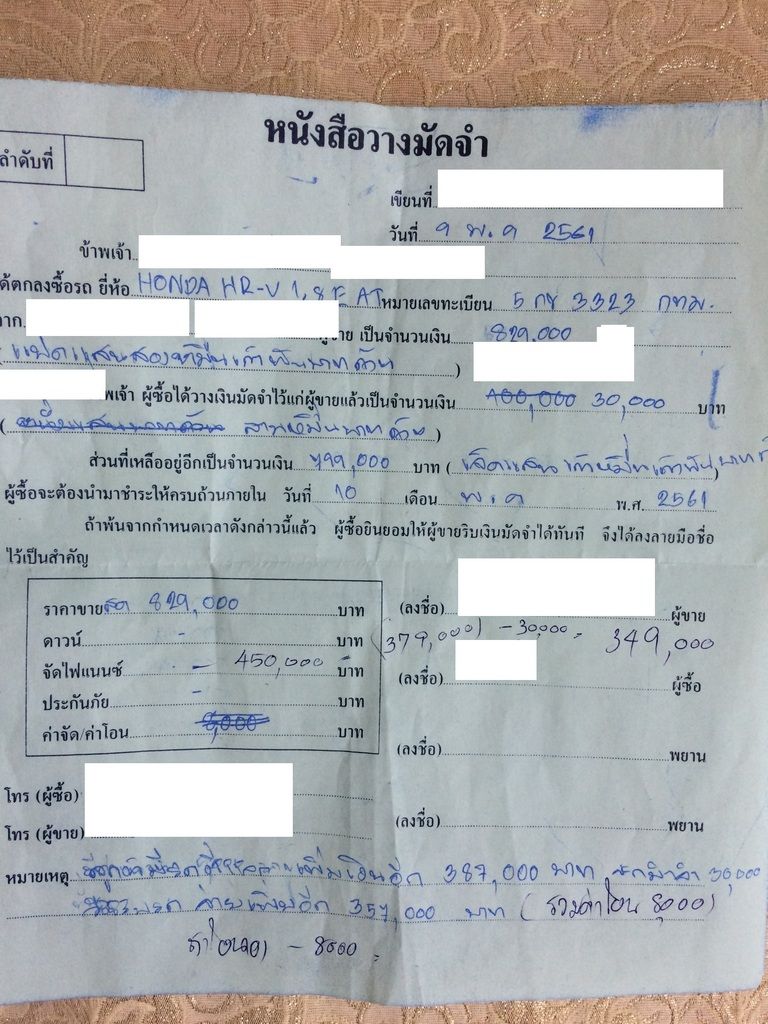 หนังสือวางมัดจำ
ลำดับที่
เขียนที่
วันที่ 9 พ.ค 2561
ข้าพเจ้า
ด้ตกลงซื้อรถ ยี่ห้อ HONDA HR-V 1.8 E AT หมายเลขทะเบียน 5 กข 3323 กทม.
เป็นจำนวนเงิน 829,000
(แปดแสนสองหมื่นเก้าพันบาทถ้วน)
ผู้ซื้อได้วางเงินมัดจำไว้แก่ผู้ขายแล้วเป็นจำนวนเงิน 100,000 30,000 บาท
(หนึ่งแสนบาทถ้วน สามหมื่นบาทถ้วน)
ส่วนที่เหลืออยู่อีกเป็นจำนวนเงิน 799,000 บาท (เจ็ดแสนเก้าหมื่นเก้าพันบาท
ผู้ซื้อจะต้องนำมาชำระให้ครบถ้วนภายใน วันที่ 10 เดือน พ.ค พ.ศ. 2561
ถ้าพ้นจากกำหนดเวลาดังกล่าวนี้แล้ว ผู้ซื้อยินยอมให้ผู้ขายริบเงินมัดจำได้ทันที จึงได้ลงลายมือชื่อ
ไว้เป็นสำคัญ
ราคาขายสด 829,000 บาท
ดาวน์ - บาท
จัดไฟแนนซ์ - 450,000 บาท
ประกันภัย - บาท
ค่าจัด/ค่าโอน 8,000 บาท
(ลงชื่อ) ผู้ขาย
(379,000) - 30,000 = 349,000
(ลงชื่อ) ผู้ซื้อ
(ลงชื่อ) พยาน
(ลงชื่อ) พยาน
โทร (ผู้ซื้อ)
โทร (ผู้ขาย)
หมายเหตุ เพิ่มเงินอีก 387,000 บาท หักมัดจำ 30,000
จ่ายเพิ่มอีก 357,000 บาท (รวมค่าโอน 8,000)
ค่าโอน - 8000 =